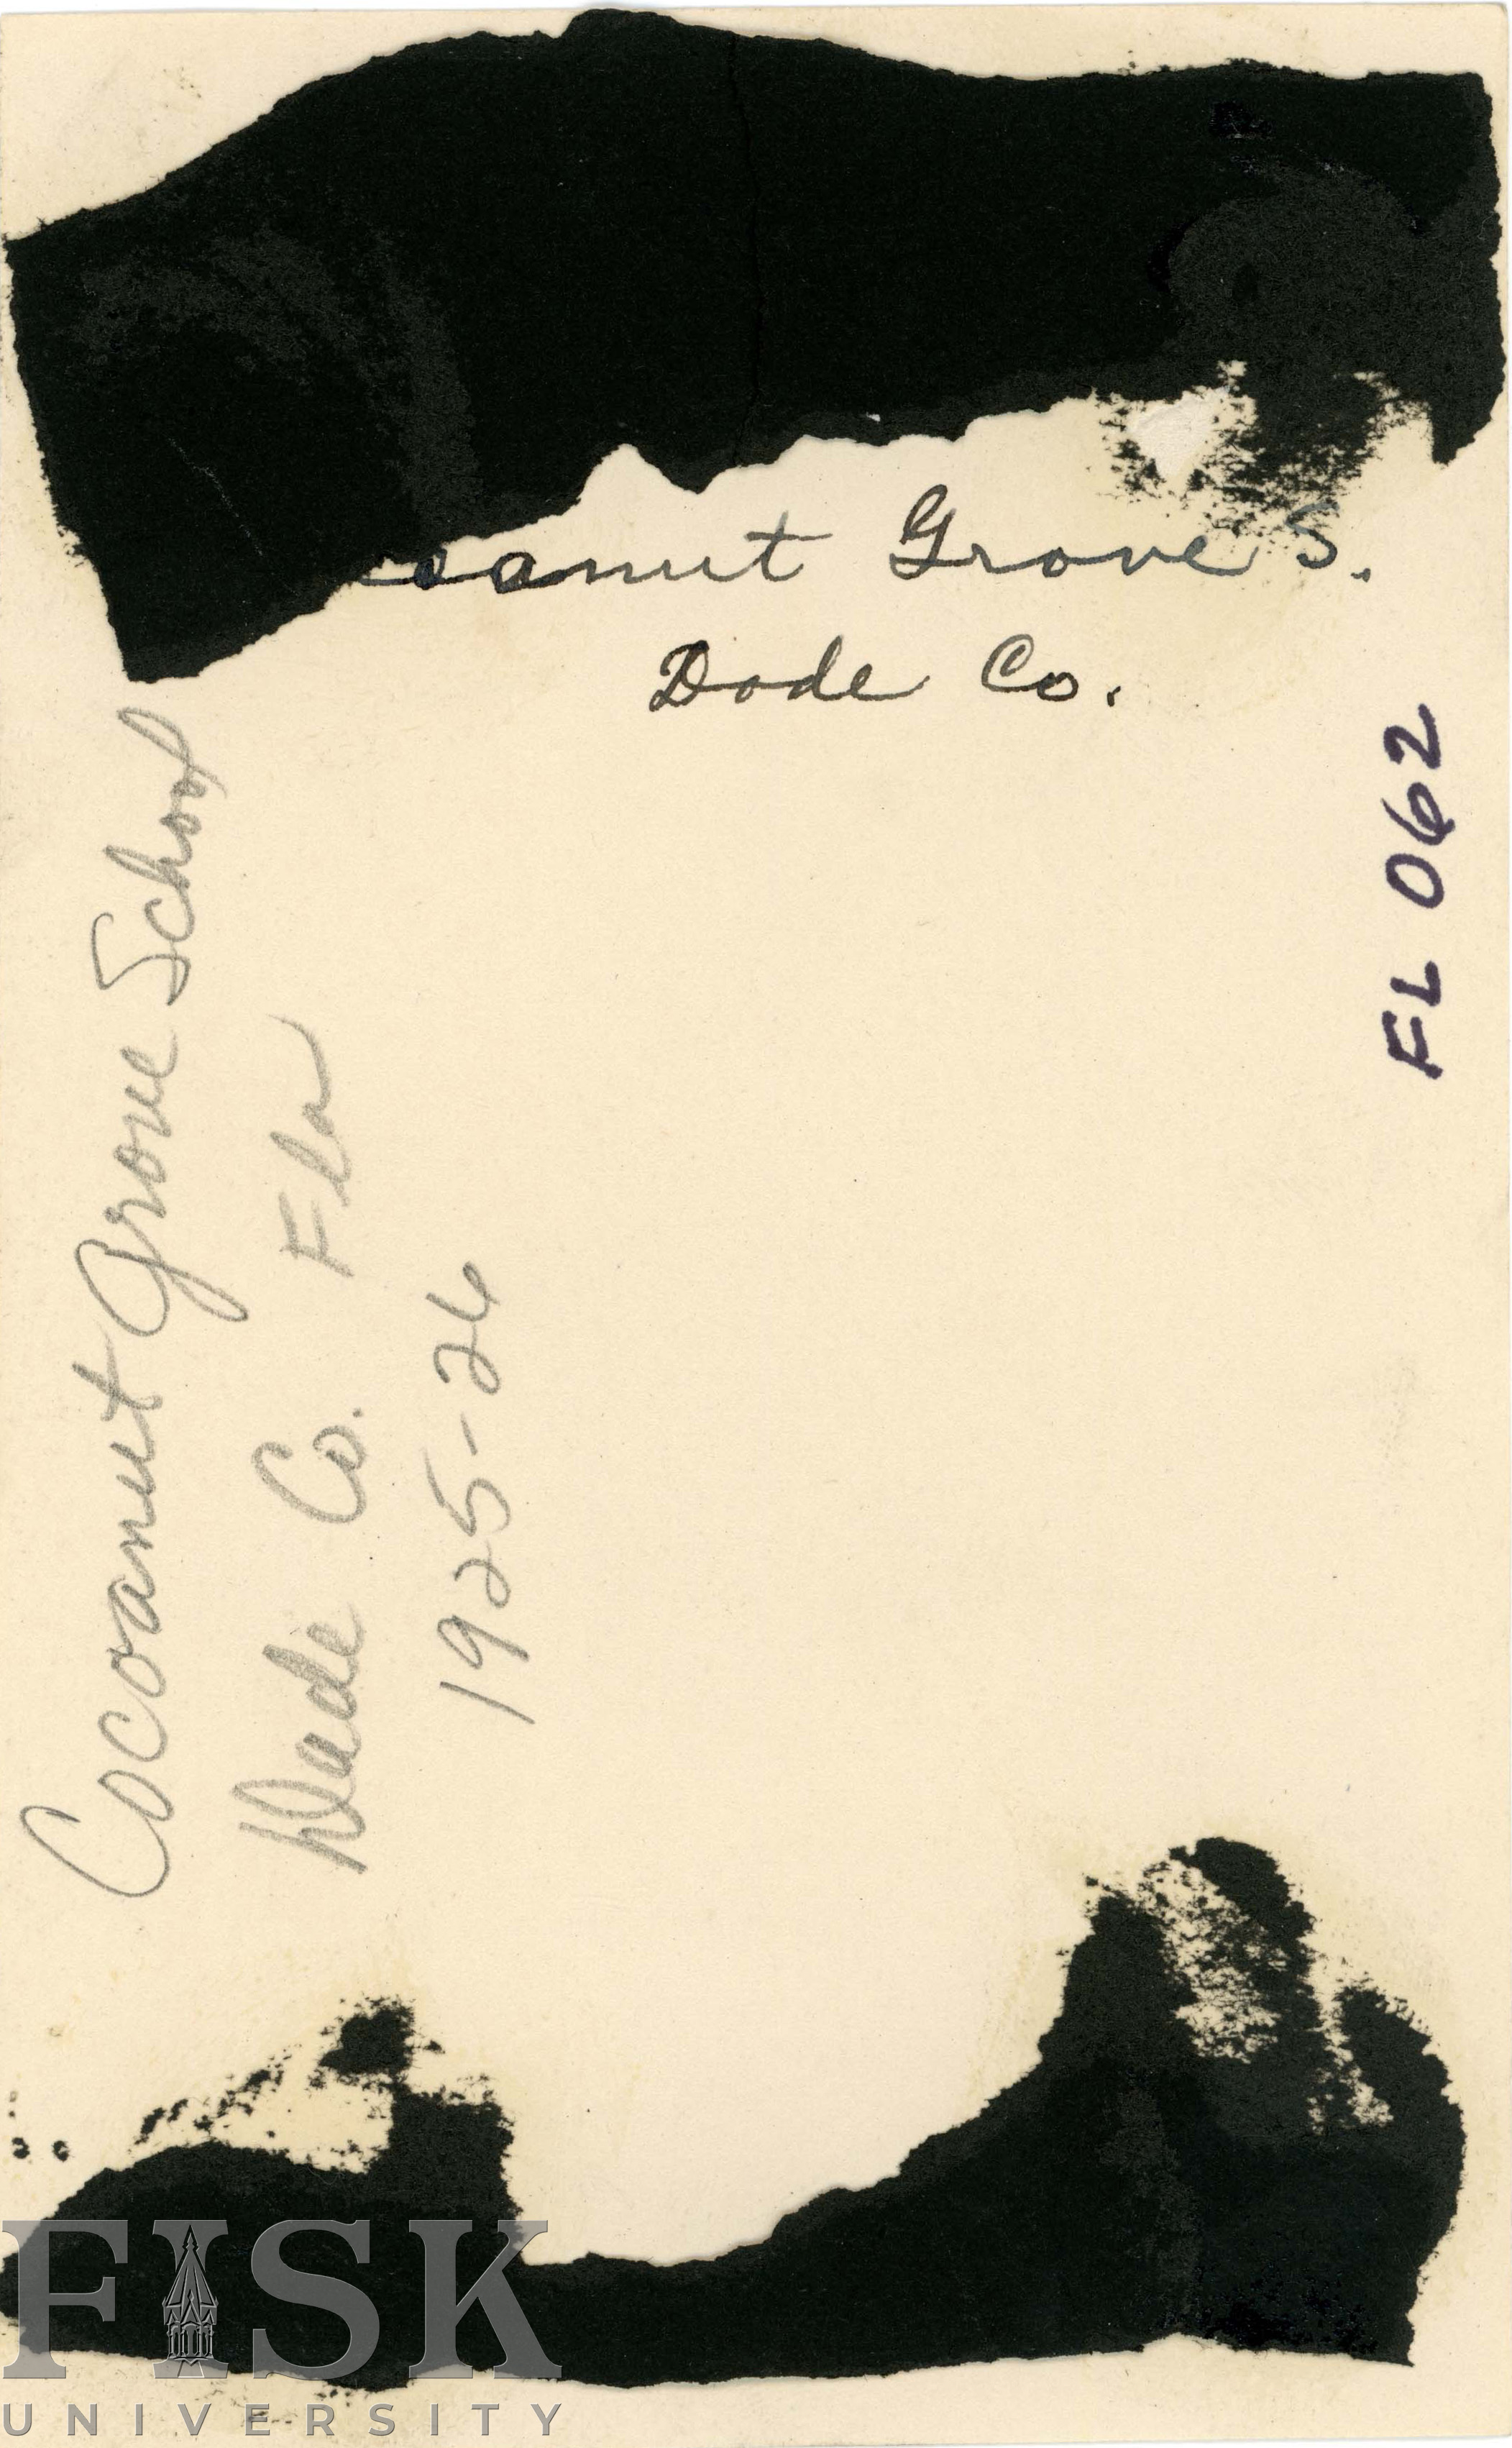 coanut Grove S.
Dade Co.
Cocoanut Grove School
Dade Co. Fla
1925-26
FL 062
FISK
UNIVERSITY